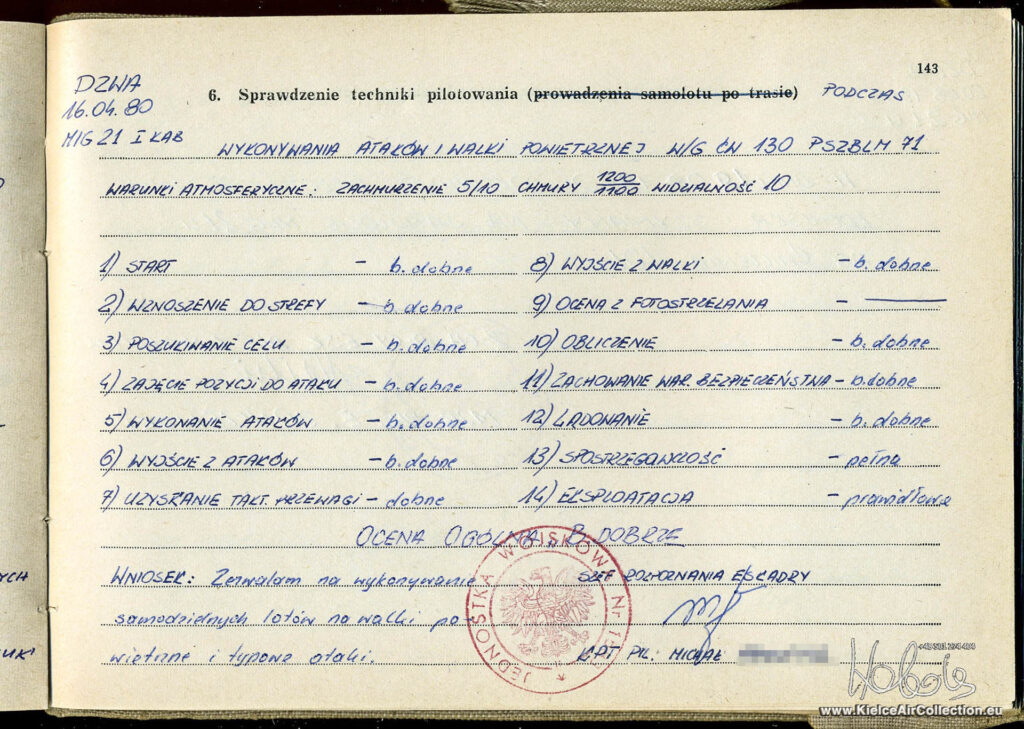 143
DZWA
16.04.80
MIG 21 I KAB
6. Sprawdzenie techniki pilotowania (prowadzenia samolotu po trasie) PODCZAS
WYKONYWANIA ATAKÓW I WALKI POWIETRZNEJ W/G ĆW 130 PSZBLM 71
WARUNKI ATMOSFERYCZNE: ZACHMURZENIE 5/10 CHMURY 1200/1100 WIDZIALNOŚĆ 10
1) START - b. dobne
2) WZNOSZENIE DO STREFY - b. dobne
3) POSZUKIWANIE CELU - b. dobne
4) ZAJĘCIE POZYCJI DO ATAKU - b. dobne
5) WYKONANIE ATAKÓW - b. dobne
6) WYJŚCIE Z ATAKÓW - b. dobne
7) UZYSKANIE TAKT. PRZEWAGI - dobne
8) WYJŚCIE Z WALKI - b. dobne
9) OCENA Z FOTOSTRZELANIA - —
10) OBLICZENIE - b. dobne
11) ZACHOWANIE WAR. BEZPIECZEŃSTWA - b. dobne
12) LĄDOWANIE - b. dobne
13) SPOSTRZEGAWCZOŚĆ - pełna
14) EKSPLOATACJA - prawidłowa
OCENA OGÓLNA B. DOBRZE
WNIOSEK: Zezwalam na wykonywanie
samodzielnych lotów na walki po
wietrzne i typowe ataki.
SZEF ROZPOZNANIA ESKADRY
KPT PIL. MICHAŁ
JEDNOSTKA WOJSKOWA Nr
YCH
www.KielceAirCollection.eu